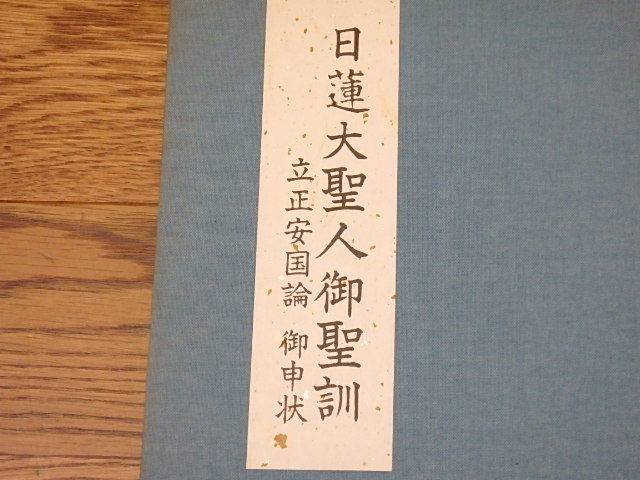 日蓮大聖人御聖訓
立正安国論 御申状